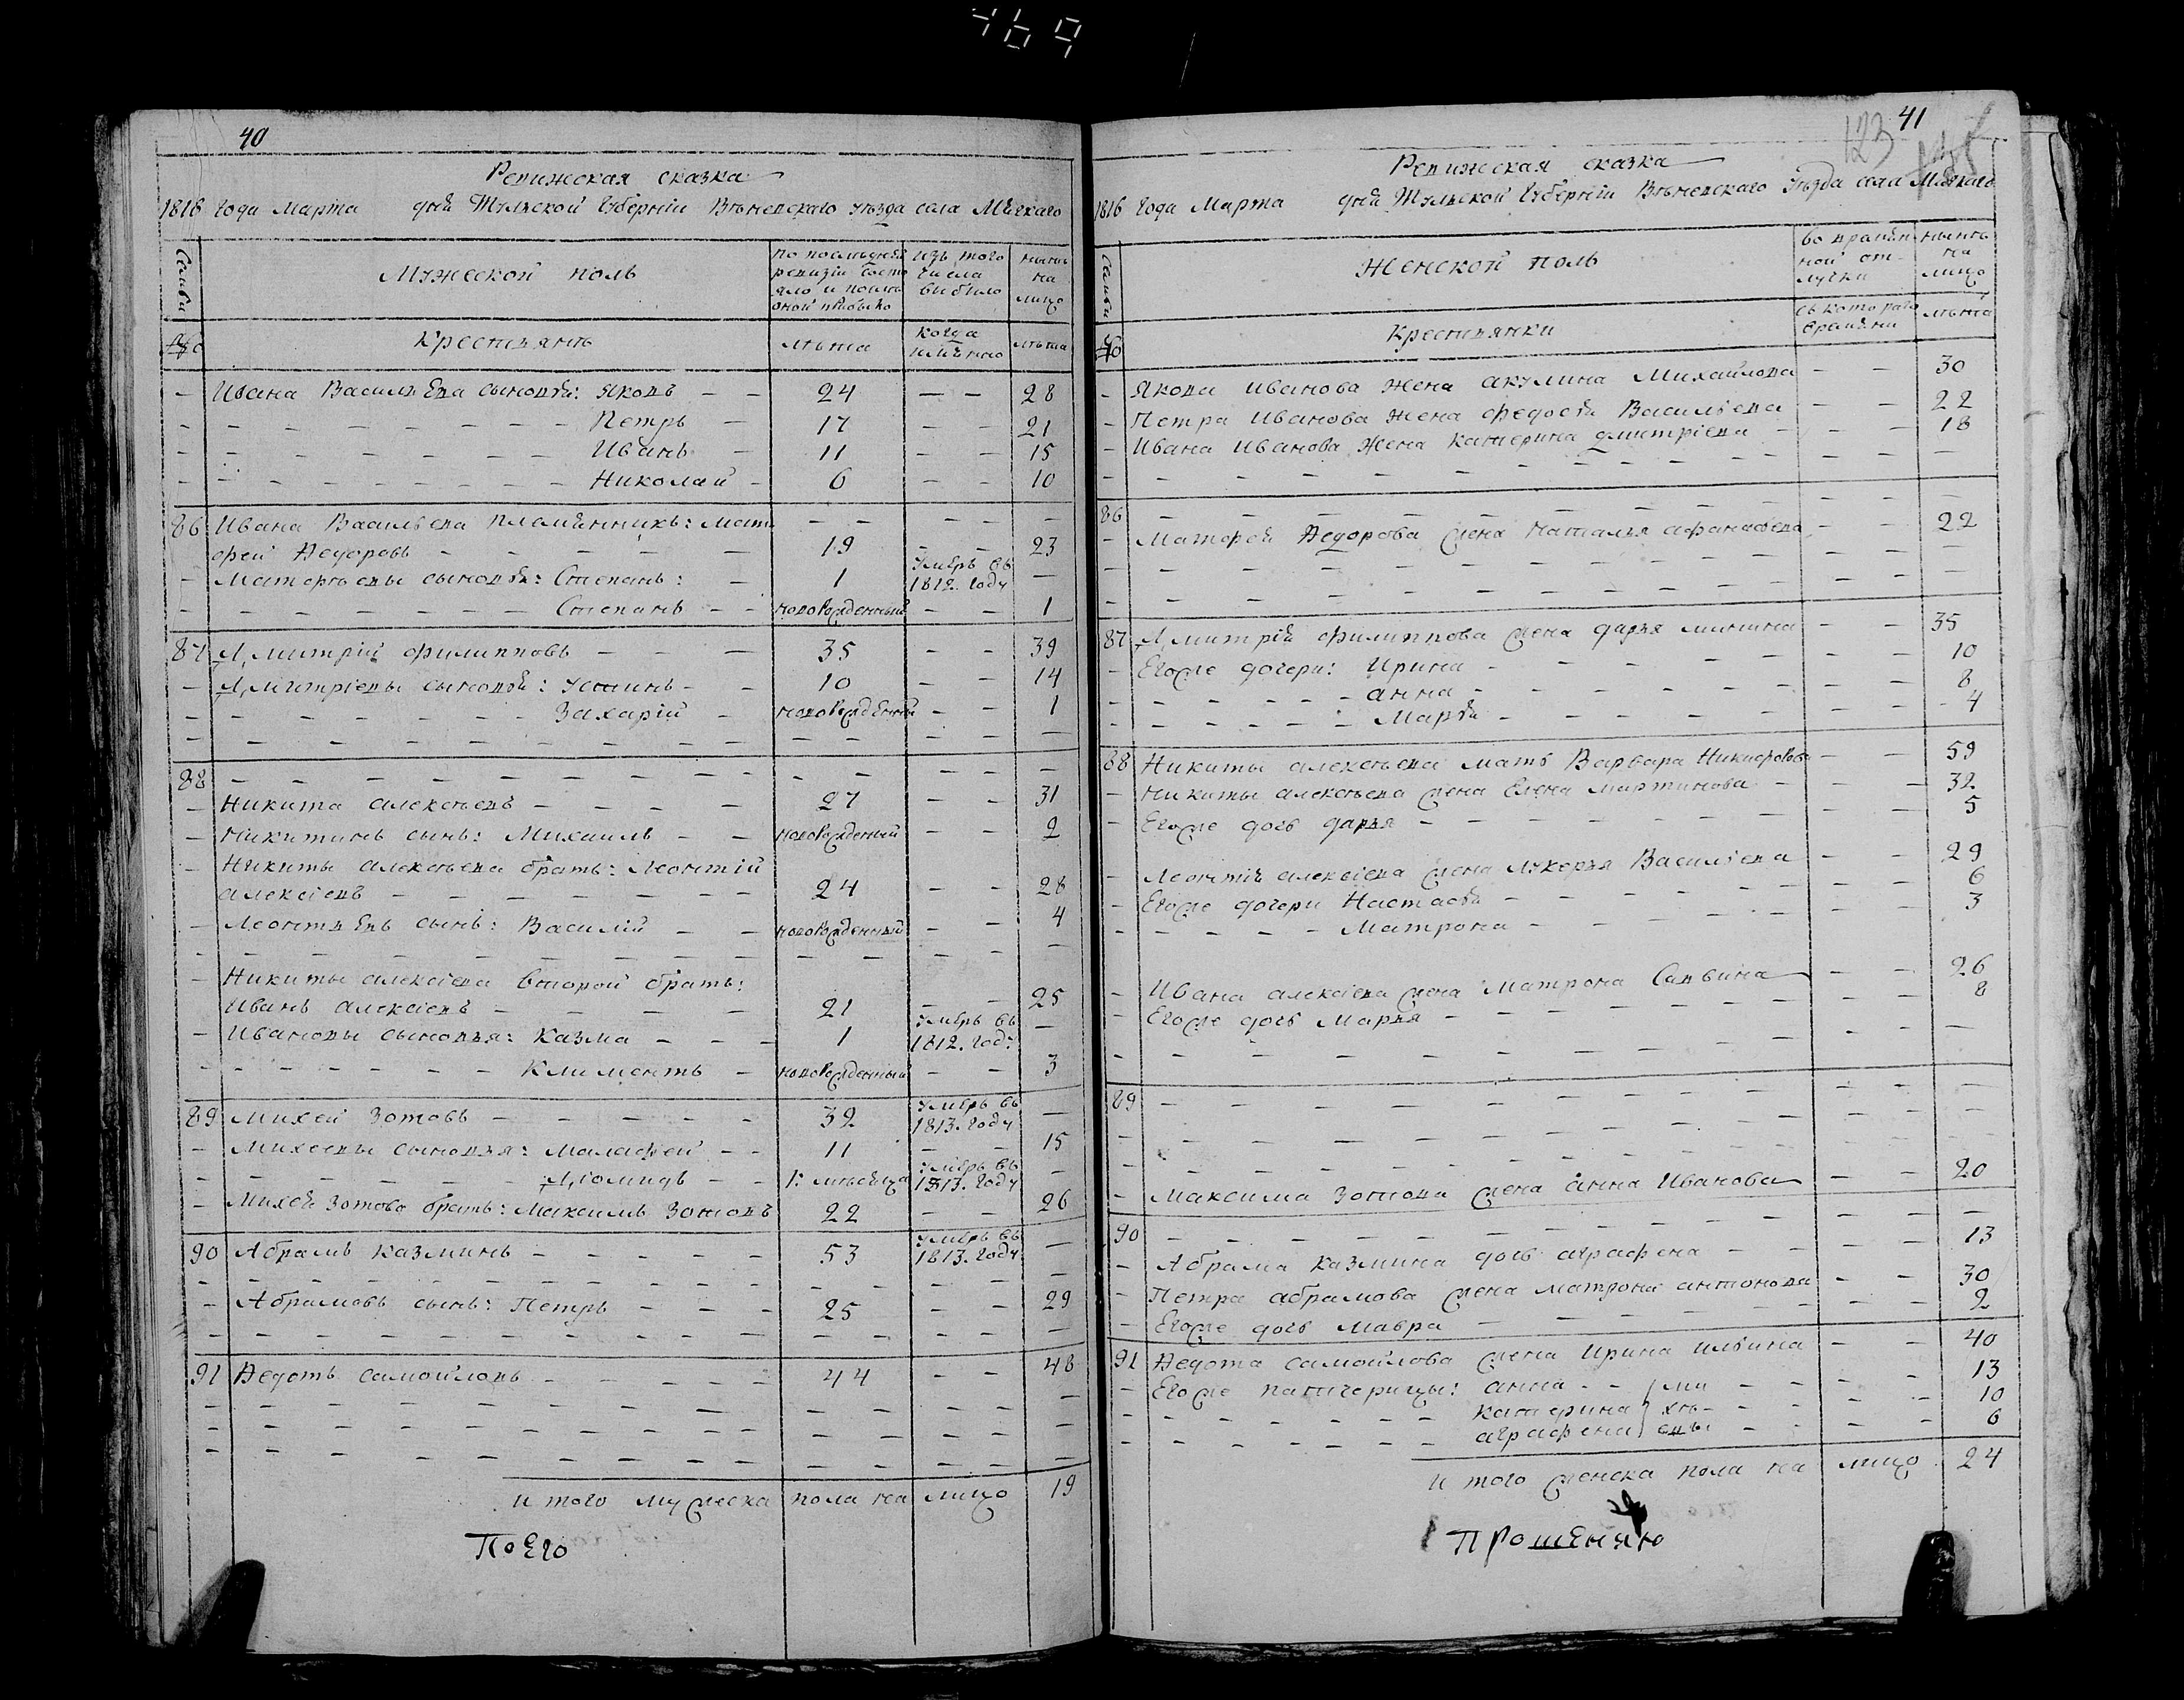 469
40
Ревижская сказка
1816 Года Марта дня Тульской Губерніи Вѣневскаго уѣзда села Мяхкаго
Семьи
Мужеской полъ
по последней ревизіи состояло и после оной прибыло
изъ того числа выбыло
ныне на лицо
№
Крестьянъ
лѣта
когда имянно
лѣта
- Ивана Васильева сыновья: Яковъ - - 24 - - 28
- - - Петръ - 17 - - 21
- - - Иванъ - 11 - - 15
- - - Николай - 6 - - 10
86 Ивана Васильева племянникъ: Мат
фей Ѳедоровъ - - - 19 - - 23
- Матфеевы сыновья: Степанъ: - 1 умеръ въ 1812. году -
- - - Степанъ - - новорожденный - - 1
87 Дмитрій Филипповъ - - - 35 - - 39
- Дмитріевы сыновья: Устинъ - - 10 - - 14
- - - Захарій - новорожденный - - 1
88 - - -
- Никита Алексѣевъ - - - 27 - - 31
- Никитинъ сынъ: Михаилъ - - новорожденый - - 2
- Никиты Алексѣева братъ: Леонтій
Алексіевъ - - - 24 - - 28
- Леонтьевъ сынъ: Василій - - новорожденный - - 4
- Никиты Алексіева второй братъ:
Иванъ Алексіевъ - - - 21 - - 25
- Ивановы сыновья: Казма - - - 1 умеръ въ 1812. год: -
- - - Климентъ - новорожденный - - 3
89 Михей Зотовъ - - - 32 умеръ въ 1813. году -
- Михеевы сыновья: Малафей - - 11 - - 15
- - - Діомидъ - - 1: месеца умеръ въ 1813. году -
- Михея Зотова братъ: Максимъ Зотовъ 22 - - 26
90 Абрамъ Казминъ - - - 53 умеръ въ 1813. году -
- Абрамовъ сынъ: Петръ - - - 25 - - 29
91 Ѳедотъ Самойловъ - - - 44 - - 48
и того мужеска пола на лицо 19
По Его
41
123
Ревижская сказка
1816 Года Марта дня Тульской Губерніи Вѣневскаго уѣзда села Мяхкаго
Семьи
Женской полъ
во времянной отлучки
ныне на лицо
№
Крестьянки
съ котораго времяни
лѣта
- Якова Иванова жена Акулина Михайлова - - 30
- Петра Иванова жена Федосья Васильева - - 22
- Ивана Иванова жена Катерина Дмитріева - - 18
86 - - -
- Матфея Ѳедорова жена Наталья Афанасьева - - 22
87 Дмитрія Филиппова жена Дарья Минина - - 35
- Егоже дочери: Ирина - - - 10
- - - Анна - - - 8
- - - Марья - - - 4
88 Никиты Алексѣева мать Варвара Никифорова - - 59
- Никиты Алексѣева жена Елена Мартинова - - 32
- Егоже дочь Дарья - - - 5
- Леонтія Алексіева жена Лукерья Васильева - - 29
- Егоже дочери Настасья - - - 6
- - - Матрона - - - 3
- Ивана Алексіева жена Матрона Саввина - - 26
- Егоже дочь Марья - - - 8
89 - - -
- Максима Зотова жена Анна Иванова - - 20
90 - - -
- Абрама Казмина дочь Аграфена - - 13
- Петра Абрамова жена Матрона Антонова - - 30
- Егоже дочь Мавра - - - 2
91 Ѳедота Самойлова жена Ирина Ильина - - 40
- Егоже патчерицы: Анна - - ми - - 13
- - - Катерина хѣ - - 10
- - - Аграфена евы - - 6
и того женска пола на лицо 24
Прошенью